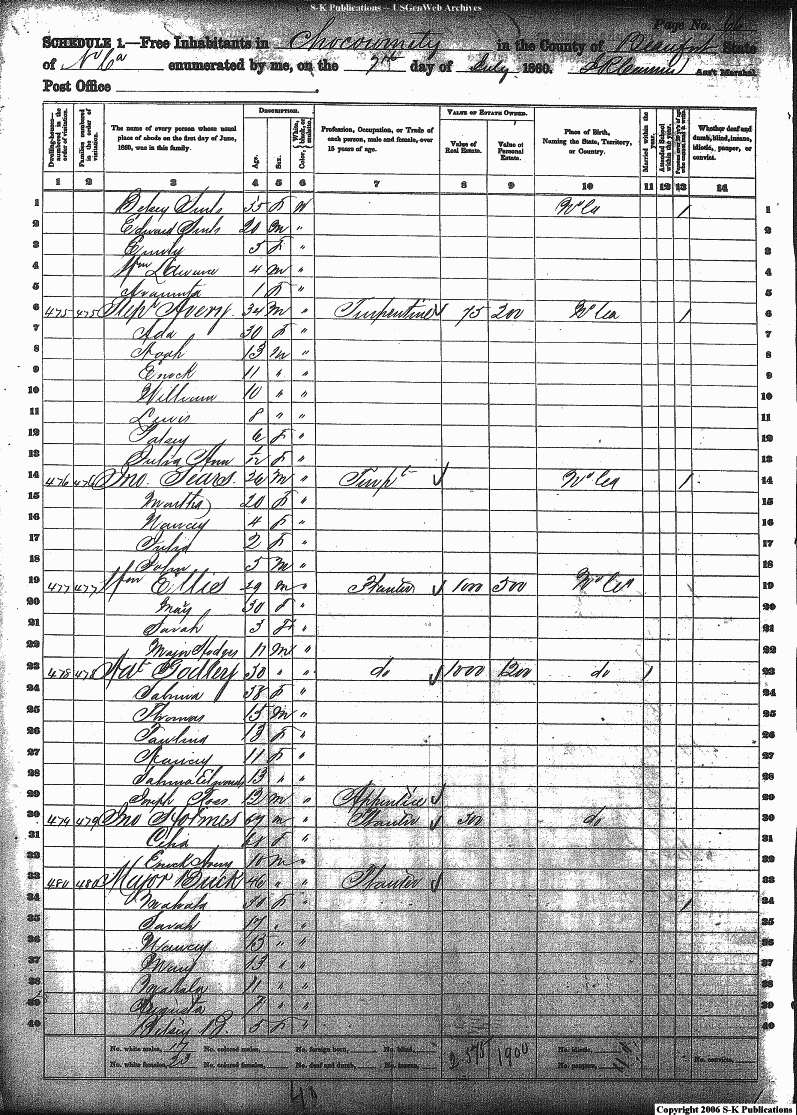 S-K Publications – USGenWeb Archives
Page No. 66
SCHEDULE 1.—Free Inhabitants in Chocowinity in the County of Beaufort State
of No Ca enumerated by me, on the 7th day of July 1860. Ass't Marshal
Post Office
Dwelling-houses—numbered in the order of visitation.
Families numbered in the order of visitation.
The name of every person whose usual place of abode on the first day of June, 1860, was in this family.
DESCRIPTION.
Age.
Sex.
Color, White, black, or mulatto.
Profession, Occupation, or Trade of each person, male and female, over 15 years of age.
VALUE OF ESTATE OWNED.
Value of Real Estate.
Value of Personal Estate.
Place of Birth, Naming the State, Territory, or Country.
Married within the year.
Attended School within the year.
Whether deaf and dumb, blind, insane, idiotic, pauper, or convict.
1 2 3 4 5 6 7 8 9 10 11 12 13 14
1 Betsey 35 f W No Ca / 1
2 Edward 20 m " 2
3 Emily 5 f " 3
4 Wm Edward 4 m " 4
5 Araminta 1 f " 5
6 475 475 Avery 34 m " Turpentine 75 200 No Ca / 6
7 Ada 30 f " 7
8 Noah 13 m " 8
9 Enock 11 " " 9
10 William 10 " " 10
11 Lewis 8 " " 11
12 Patsy 6 f " 12
13 Julia Ann f " 13
14 476 476 Jno. Sears 26 m " Turpt No Ca / 14
15 Martha 20 f " 15
16 Nancy 4 f " 16
17 Julia 2 f " 17
18 John 5 m " 18
19 477 477 Wm Ellies 29 m " Planter 100 500 No Ca 19
20 Mary 30 f " 20
21 Sarah 3 f " 21
22 Major Hodges 17 m " 22
23 478 478 Godley 30 " " do 1000 1200 do / 23
24 Sabrina 38 f " 24
25 Thomas 15 m " 25
26 Paulina 13 f " 26
27 Nancy 11 f " 27
28 Sabrina Edwards 13 " " 28
29 Joseph Ross 12 m " Apprentice 29
30 479 479 Jno Holmes 67 m " Planter 500 do 30
31 Celia 60 f " 31
32 Enock Avery 10 m " 32
33 480 480 Major Buck 46 " " Planter 33
34 Mahala 38 f " / 34
35 Sarah 17 " " 35
36 Nancy 15 " " 36
37 Mary 13 " " 37
38 Mahala 11 " " 38
39 Augusta 7 " " 39
40 Betsey 5 f " 40
No. white males, 17 No. colored males, No. foreign born, No. blind, 1900 No. idiotic,
No. white females, 23 No. colored females, No. deaf and dumb, No. insane, No. paupers, No. convicts,
40
Copyright 2006 S-K Publications